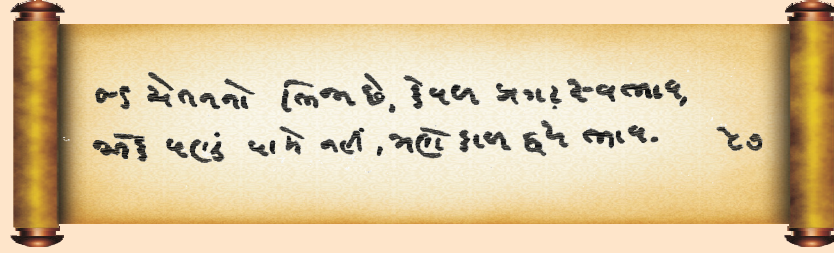 જડ ચેતનનો ભિન્ન છે, કેવળ પ્રગટ સ્વભાવ,
એક પણું પામે નહીં, ત્રણે કાળ દ્વય ભાવ. ૫૭